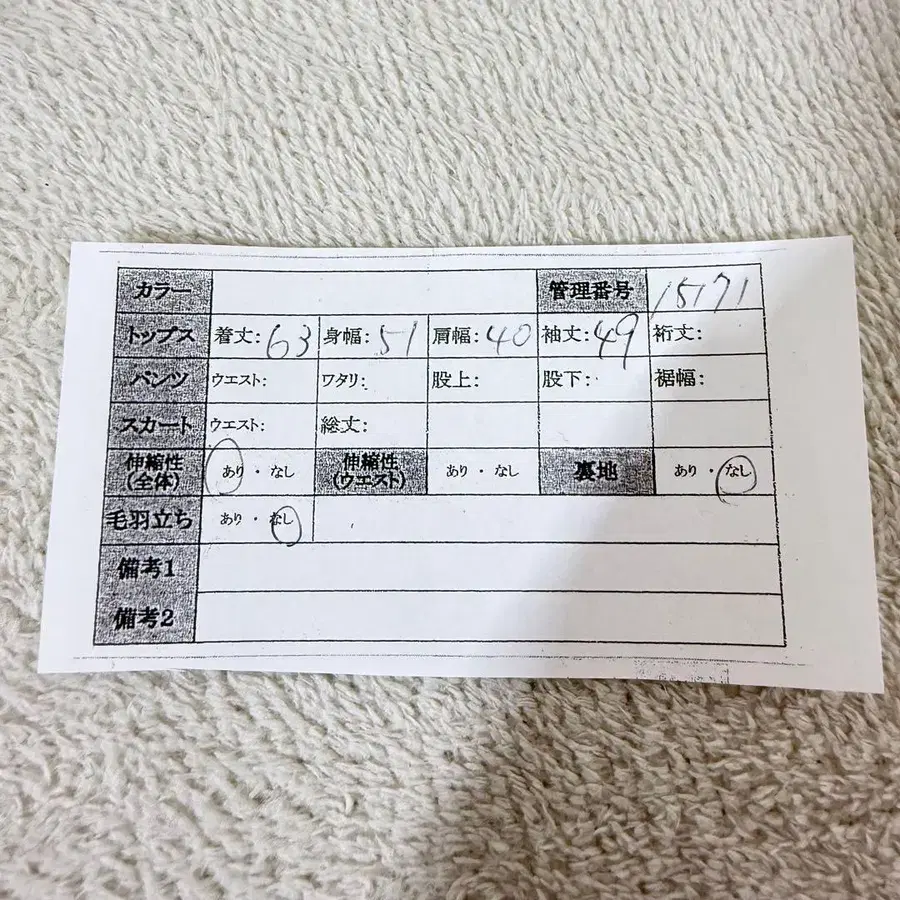 カラー 管理番号 15171
トップス 着丈: 63 身幅: 51 肩幅: 40 袖丈: 49 裄丈:
パンツ ウエスト: ワタリ: 股上: 股下: 裾幅:
スカート ウエスト: 総丈:
伸縮性 (全体) あり ・ なし 伸縮性 (ウエスト) あり ・ なし 裏地 あり ・ なし
毛羽立ち あり ・ なし
備考1
備考2